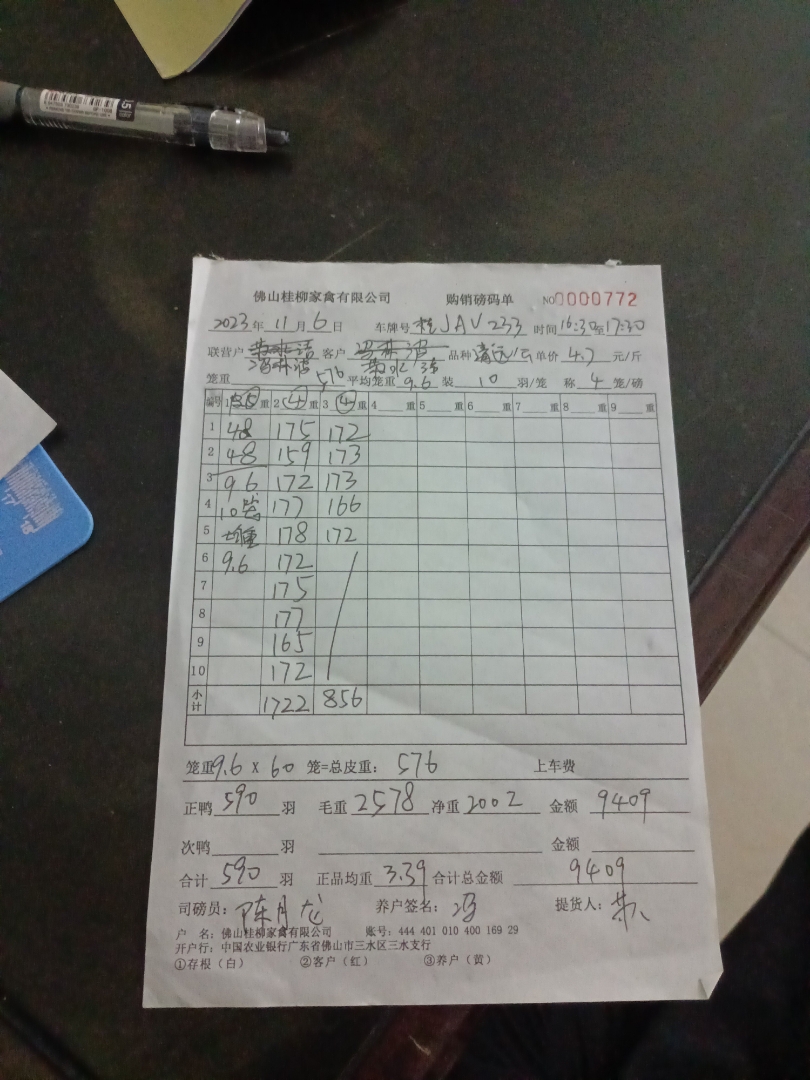 佛山桂柳家禽有限公司 购销磅码单 NO0000772
2023年 11月 6日 车牌号 桂JAV233 时间 16:30至17:30
联营户 客户 品种 清远 单价 4.7 元/斤
笼重 576 平均笼重 9.6 装 10 羽/笼 称 4 笼/磅
编号 1 重 2 4 重 3 4 重 4 重 5 重 6 重 7 重 8 重 9 重
1 48 175 172
2 48 159 173
3 9.6 172 173
4 10笼 177 166
5 均重 178 172
6 9.6 172
7 175
8 177
9 165
10 172
小计 1722 856
笼重9.6 x 60 笼=总皮重: 576 上车费
正鸭 590 羽 毛重 2578 净重 2002 金额 9409
次鸭 羽 金额
合计 590 羽 正品均重 3.39 合计总金额 9409
司磅员: 陈月龙 养户签名: 冯 提货人:
户 名: 佛山桂柳家禽有限公司 账号: 444 401 010 400 169 29
开户行: 中国农业银行广东省佛山市三水区三水支行
①存根(白) ②客户(红) ③养户(黄)